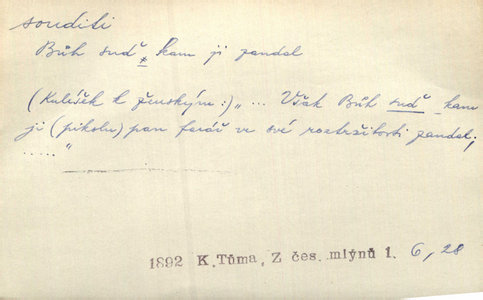 souditi
Bůh suď kam ji pandal
*
(Kulíšek k ženským:) „ ... Však Bůh suď kam
ji (pikolu) pan farář ve své roztržitosti pandal;
..... “
1892 K. Tůma, Z čes. mlýnů 1. 6, 28